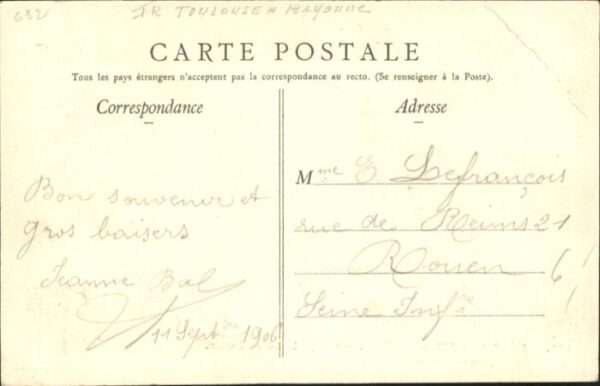 632
IR TOULOUSE A BAYONNE
CARTE POSTALE
Tous les pays étrangers n'acceptent pas la correspondance au recto. (Se renseigner à la Poste).
Correspondance
Adresse
Bon souvenir et
gros baisers
Jeanne Bal
11 Sept 1906
Mme E Lefrançois
rue de Reims 21
Rouen
Seine Infre